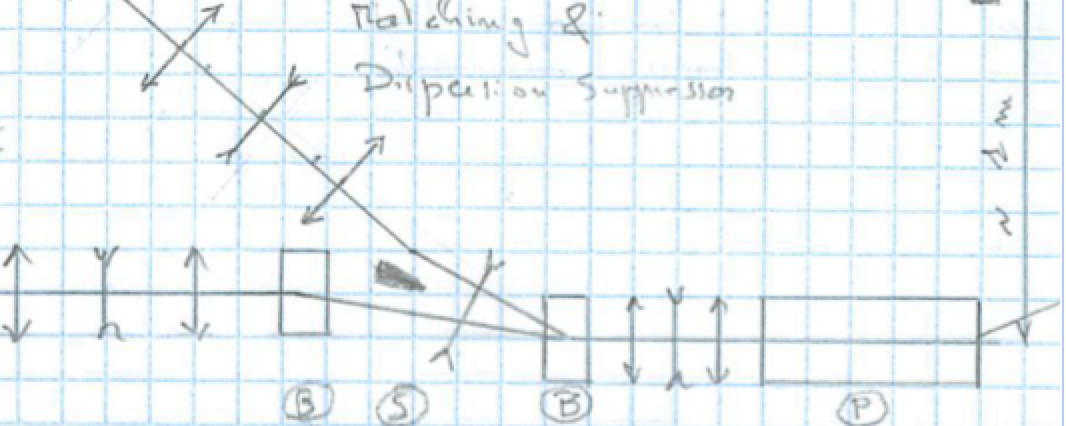 Matching &
Dispersion Suppressor
B S B P